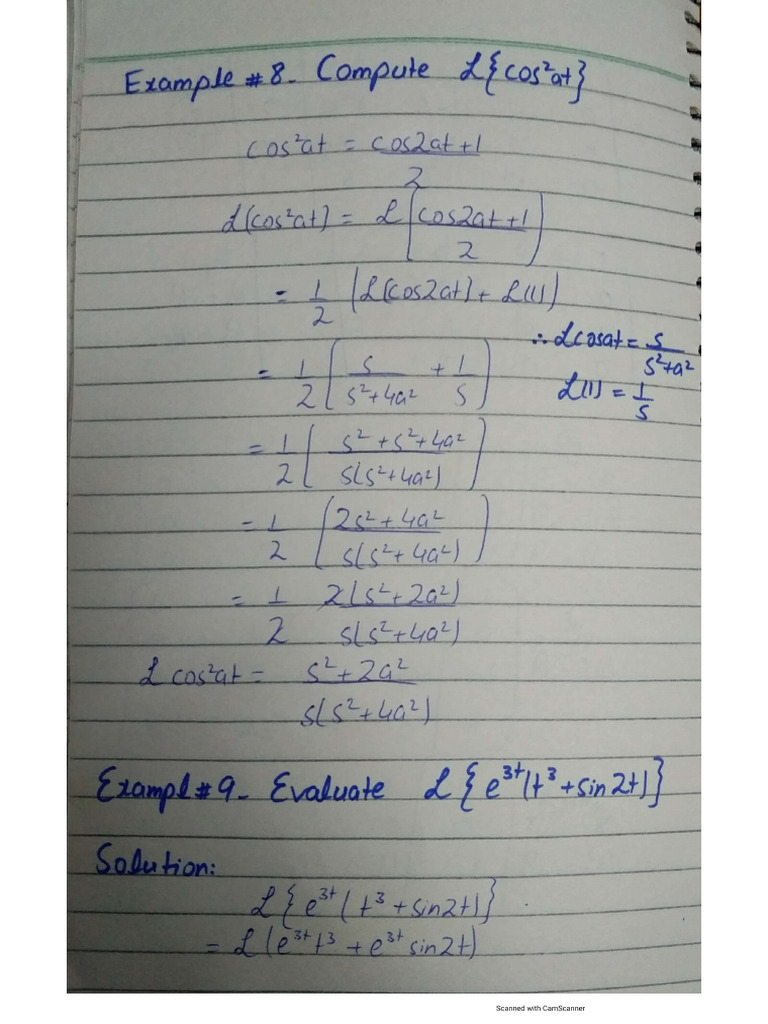 Example #8- Compute ℒ{cos²at}
cos²at = cos2at+1
2
ℒ(cos²at) = ℒ(cos2at+1
2)
= 1/2 (ℒ(cos2at)+ ℒ(1))
∴ ℒcosat = s/s²+a²
= 1/2 (s/s²+4a² + 1/s)
ℒ(1) = 1/s
= 1/2 (s²+s²+4a²
s(s²+4a²))
= 1/2 (2s²+4a²
s(s²+4a²))
= 1/2 2(s²+2a²)
s(s²+4a²)
ℒ cos²at = s²+2a²
s(s²+4a²)
Exampl#9- Evaluate ℒ{e³ᵗ(t³+sin2t)}
Solution:
ℒ{e³ᵗ(t³+sin2t)}
= ℒ(e³ᵗt³ + e³ᵗ sin2t)
Scanned with CamScanner